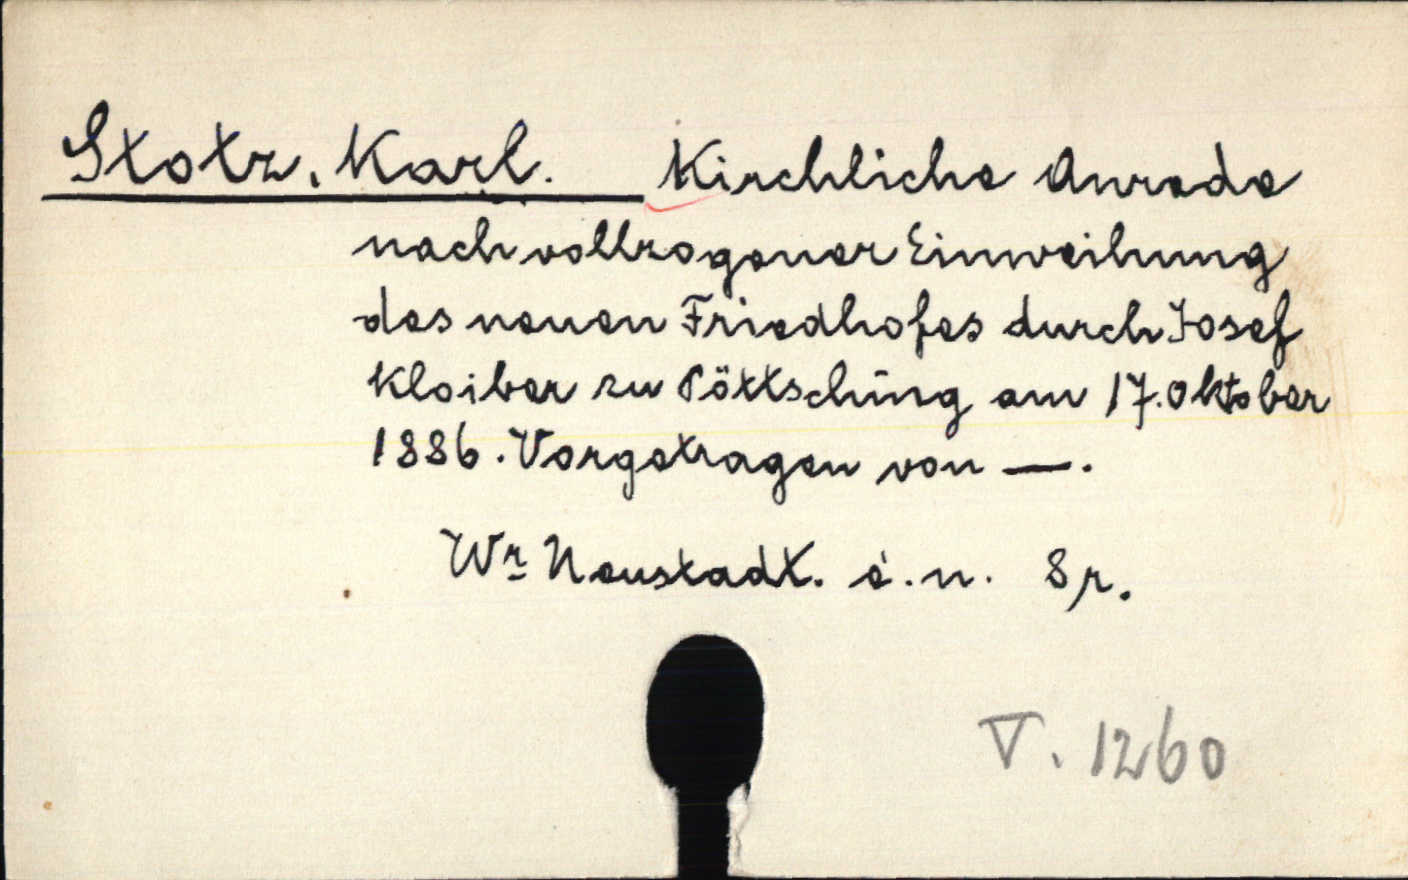 Stotz, Karl. Kirchliche Anrede
nach vollzogener Einweihung
des neuen Friedhofes durch Josef
Kloiber zu Pöttsching am 17. Oktober
1886. Vorgetragen von —.
Wr Neustadt. é. n. 8 r.
V. 1260